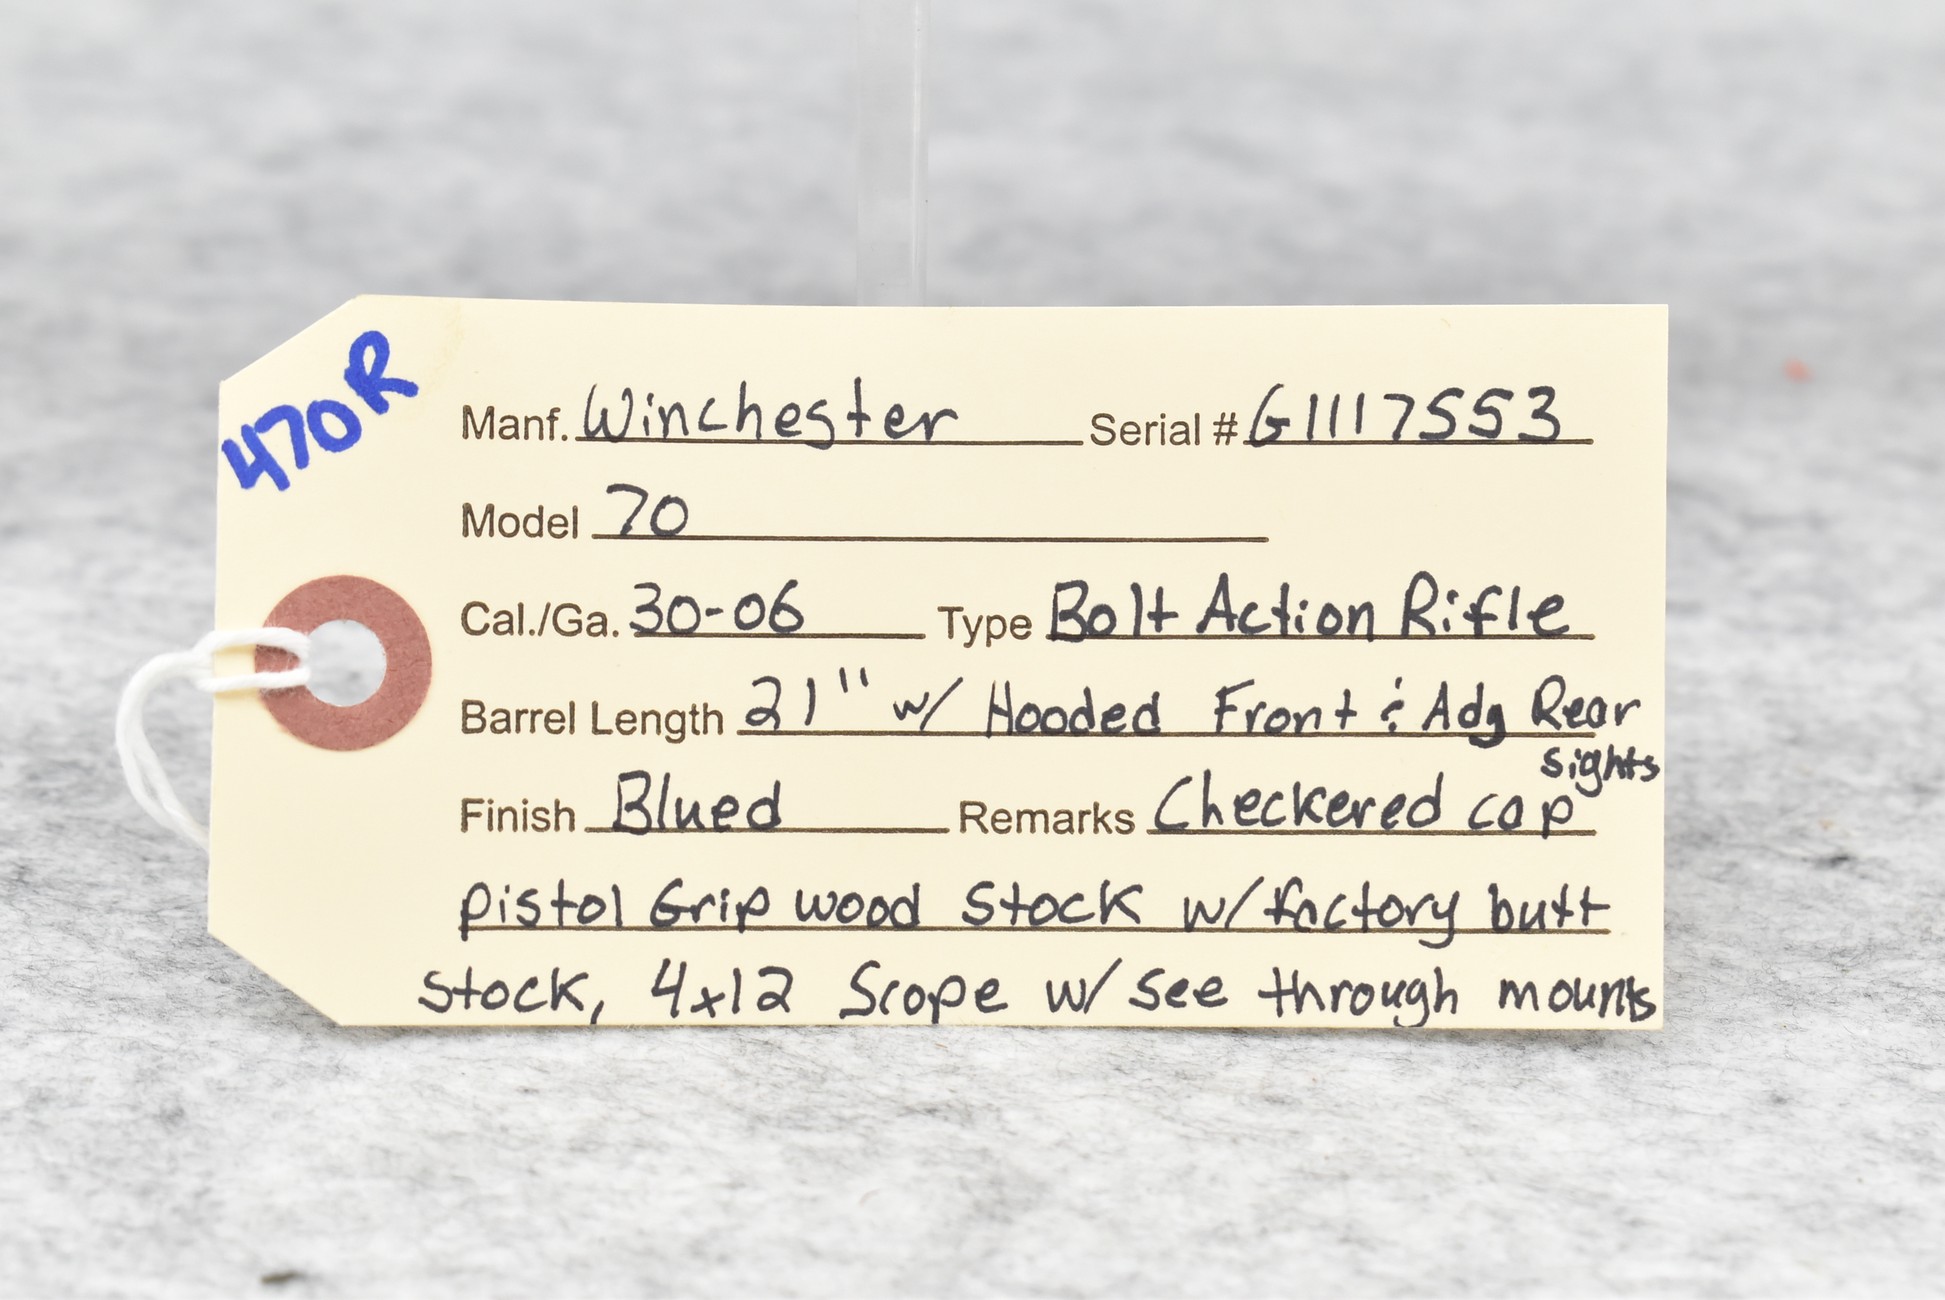 470R
Manf. Winchester Serial # G1117553
Model 70
Cal./Ga. 30-06 Type Bolt Action Rifle
Barrel Length 21" w/ Hooded Front & Adg Rear
sights
Finish Blued Remarks Checkered cap
pistol Grip wood Stock w/ factory butt
stock, 4x12 Scope w/ see through mounts